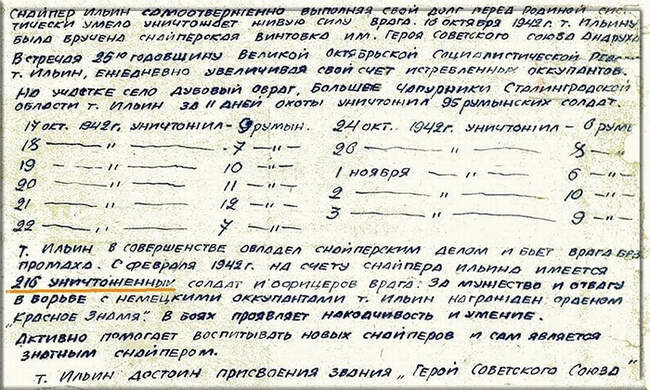 Снайпер Ильин самоотверженно выполняя свой долг перед Родиной сис-
тически умело уничтожает живую силу врага. 16 октября 1942г. т. Ильину
была вручена снайперская винтовка им. Героя Советского Союза Андруха
Встречая 25ю годовщину Великой Октябрьской Социалистической Рев
т. Ильин, ежедневно увеличивая свой счет истребленных оккупантов.
На участке село Дубовый овраг, Большее Чапурники Сталинградской
области т. Ильин за 11 дней охоты уничтожил 95 румынских солдат.
17 окт. 1942г. уничтожил - 9 румын. 24 окт. 1942г. уничтожил - 6 румы
18 — " — 7 -"- 26 — " — 8 -"-
19 — " — 10 -"- 1 ноября — " 6 -"-
20 — " — 11 -"- 2 — " — 10 -"-
21 — " — 12 -"- 3 — " — 9 -"-
22 — " — 7 -"-
т. Ильин в совершенстве овладел снайперским делом и бьет врага без
промаха. С февраля 1942г. на счету снайпера Ильина имеется
216 уничтоженных солдат и офицеров врага. За мужество и отвагу
в борьбе с немецкими оккупантами т. Ильин награжден орденом
„Красное Знамя". В боях проявляет находчивость и умение.
Активно помогает воспитывать новых снайперов и сам является
знатным снайпером.
т. Ильин достоин присвоения звания „Герой Советского Союза"